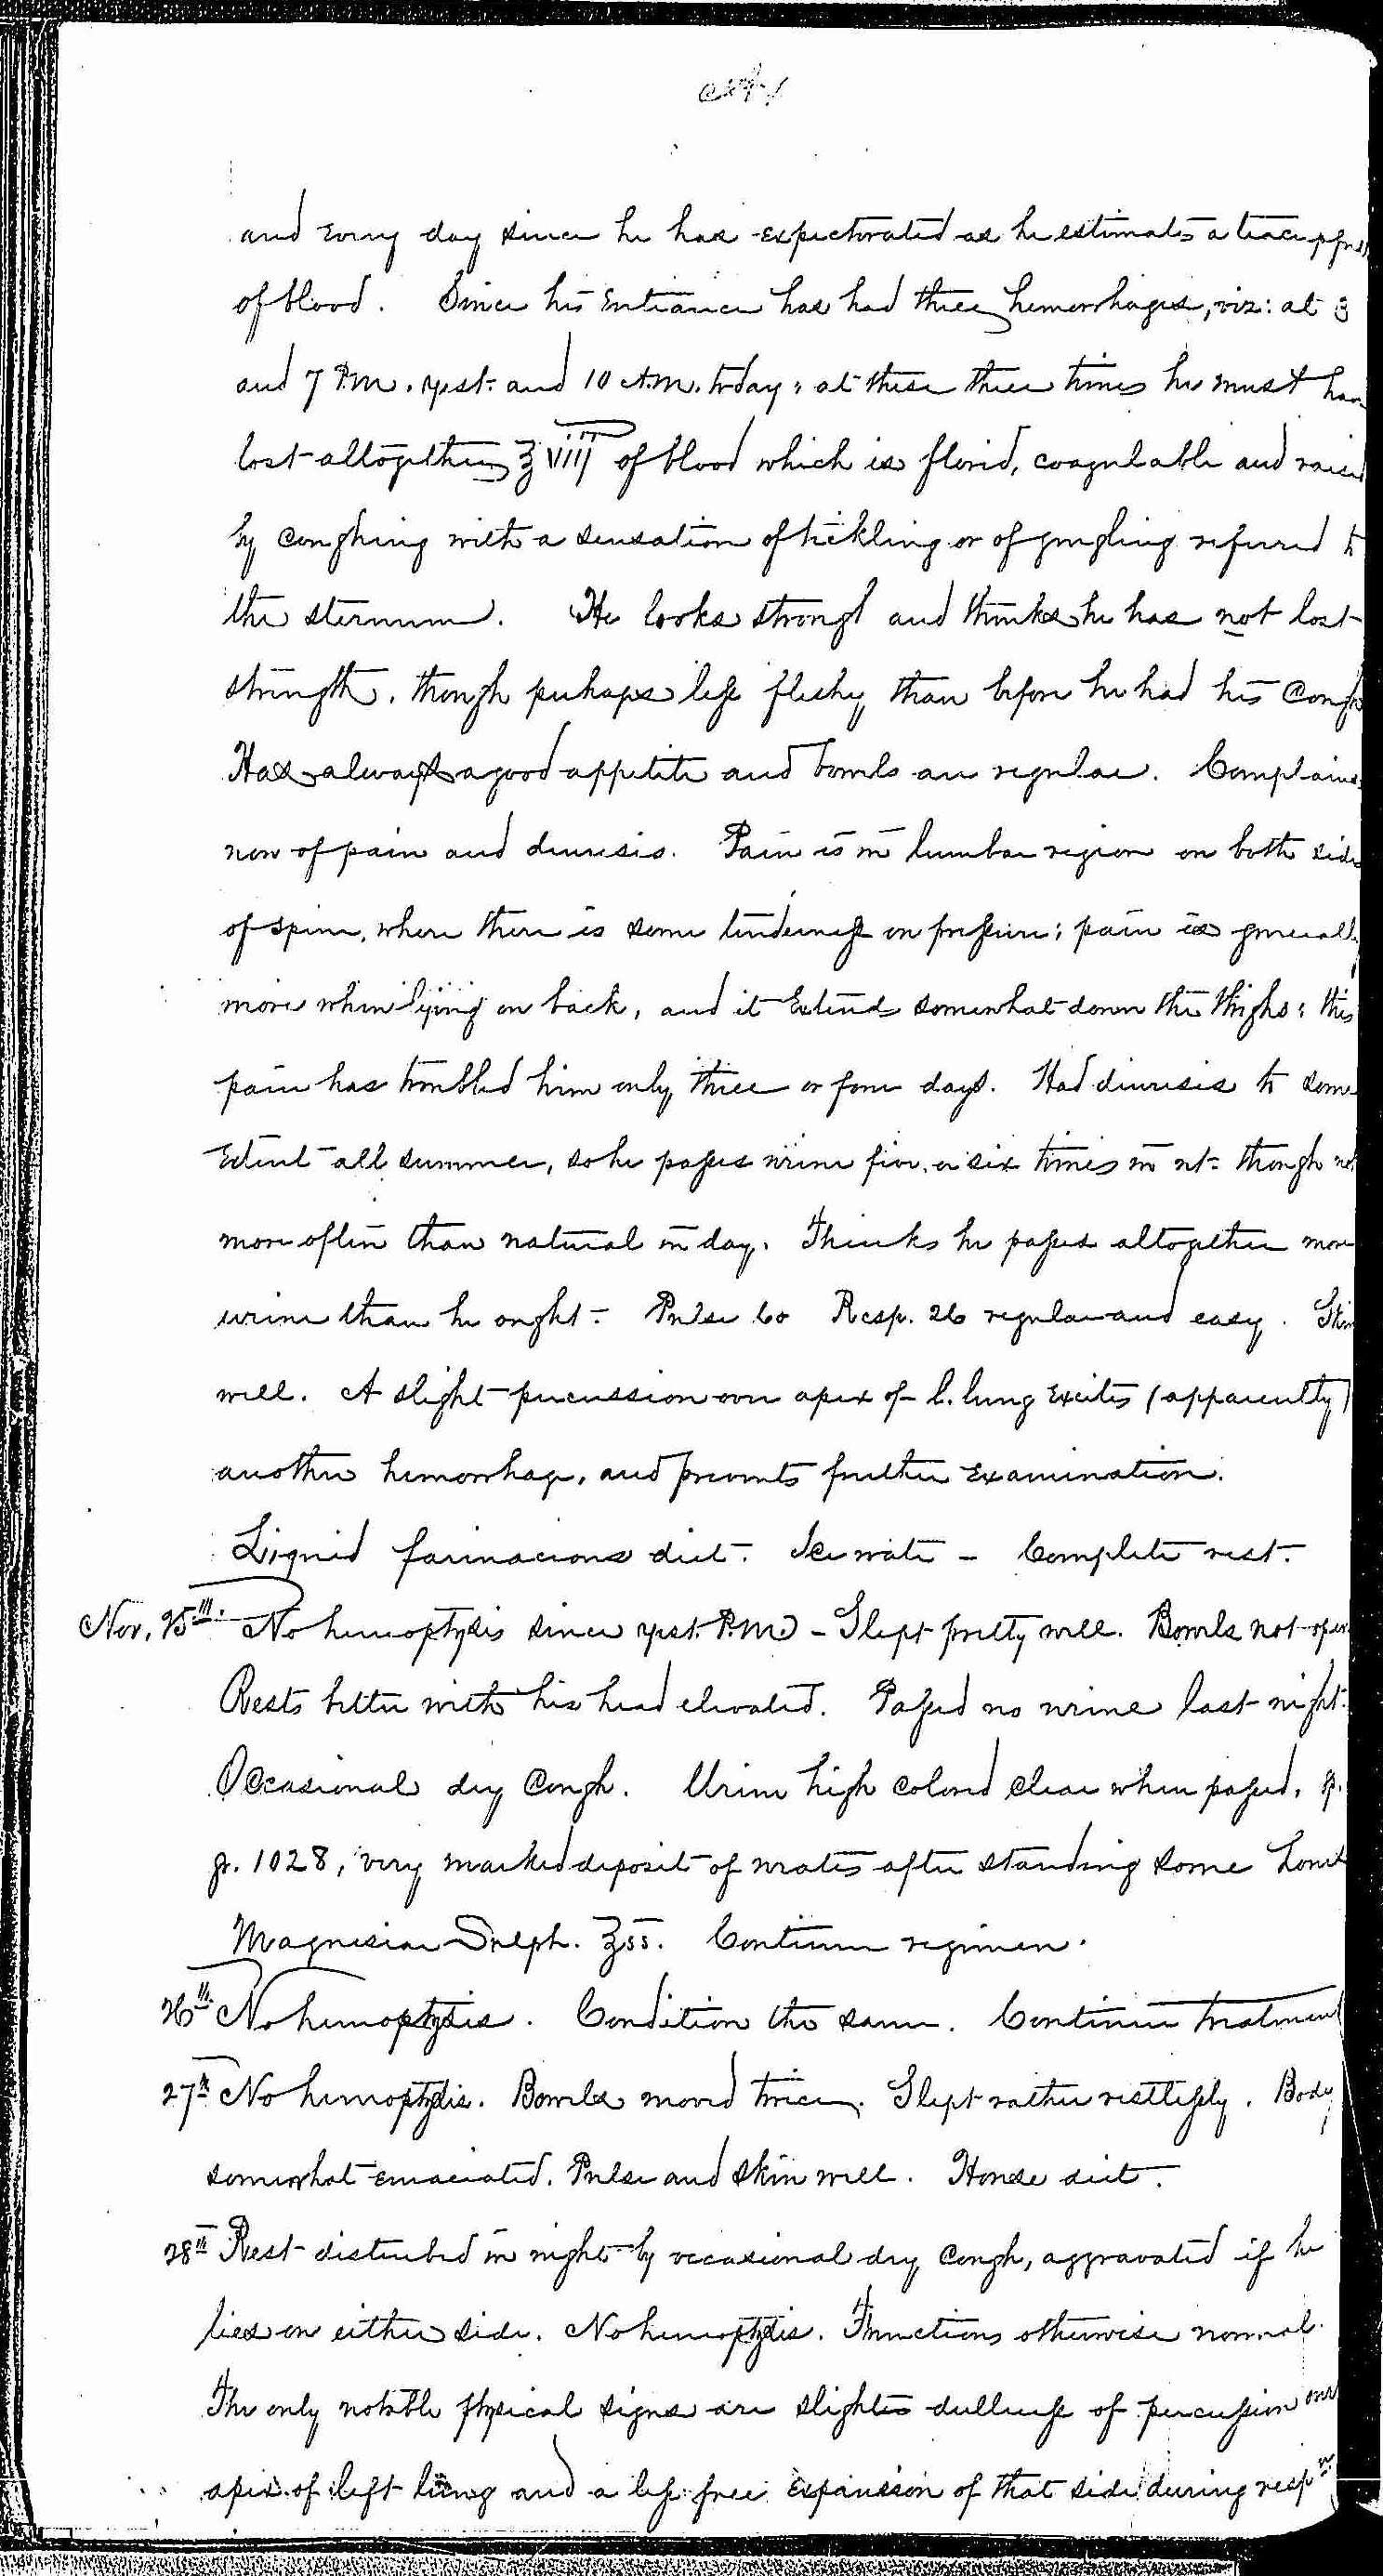 and every day since he has expectorated as he estimates a teacupful
of blood. Since his entrance has had three hemorrhages, viz: at 3
and 7 P.M. yest. and 10 A.M. to-day; at these three times he must have
lost altogether ℥ viii of blood which is florid, coagulable and raised
by coughing with a sensation of tickling or of gurgling referred to
the sternum. He looks strong and thinks he has not lost
strength, though perhaps less fleshy than before he had his cough
Has always a good appetite and bowels are regular. Complains
now of pain and diuresis. Pain is in lumbar region on both sides
of spine, where there is some tenderness on pressure; pain is generally
more when lying on back, and it extends somewhat down the thighs; this
pain has troubled him only three or four days. Had diuresis to some
extent all summer, so he passes urine five or six times in nt. though not
more often than natural in day. Thinks he passes altogether more
urine than he ought. Pulse 60 Resp. 26 regular and easy. Skin
well. A slight percussion over apex of l. lung excites (apparently)
another hemorrhage, and prevents further examination.
Liquid farinacious diet. Ice water - Complete rest.
Nov. 25th. No hemoptysis since yest. P.M. - Slept pretty well. Bowels not open
Rests better with his head elevated. Passed no urine last night.
Occasional dry cough. Urine high colored clear when passed, sp.
gr. 1028, very marked deposit of urates after standing some hours
Magnesiae Sulph. ℥ss. Continue regimen.
26th. No hemoptysis. Condition the same. Continue treatment
27th No hemoptysis. Bowels moved twice. Slept rather restlessly. Body
somewhat emaciated. Pulse and skin well. House diet.
28th Rest disturbed in night by occasional dry cough, aggravated if he
lies on either side. No hemoptysis. Functions otherwise normal.
The only notable physical signs are slight dullness of percussion over
apex of left lung and a less free expansion of that side during respn